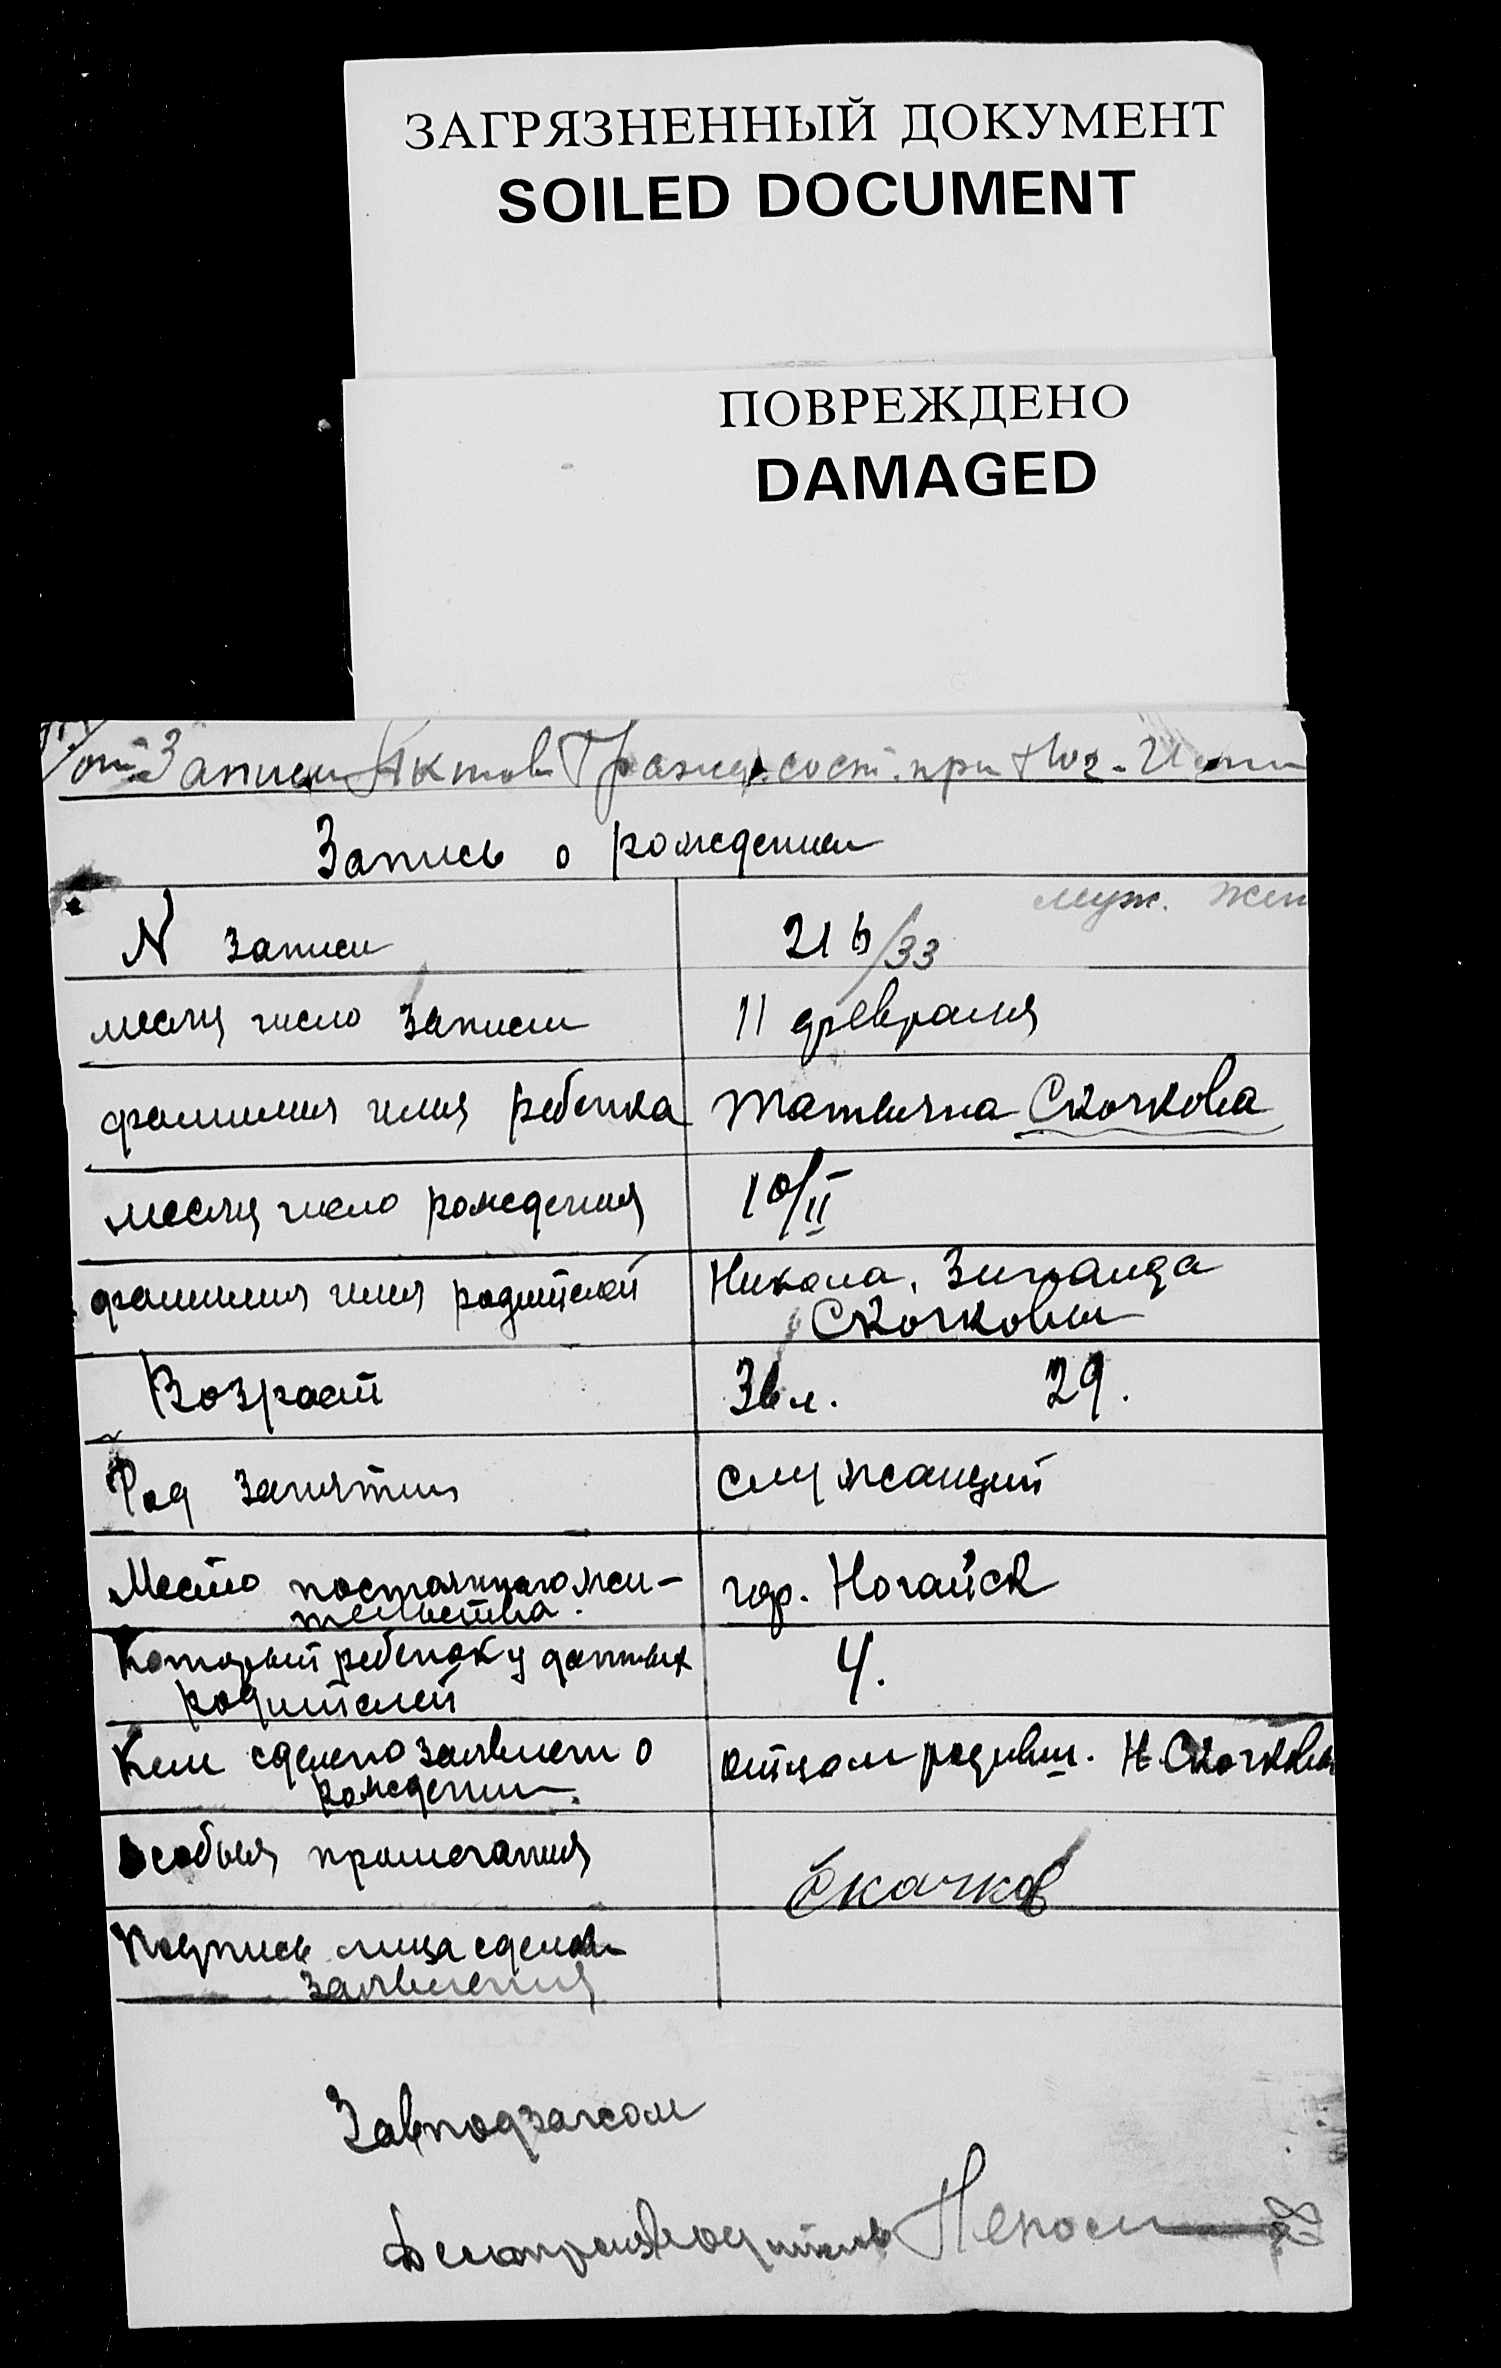 ЗАГРЯЗНЕННЫЙ ДОКУМЕНТ
SOILED DOCUMENT
ПОВРЕЖДЕНО
DAMAGED
Записи Актов Гражд. сост. при
Запись о рождении
муж. жен
N записи
месяц число записи 11 февраля
фамилия имя ребенка Татьяна Скочкова
месяц число рождения 10/II
фамилия имя родителей Никола, Зинаида
Скочковы
Возраст 36 л. 29.
Род занятия служащий
Место постоянного жи-
тельства. гор. Ногайск
Который ребенок у данных
родителей 4.
Кем сделено заявлен о
рождении. отцом родивш. Н. Скочковы
Особыя примечания
Скачков
Подпись лица сделав
заявления
Завподзагсом
Делопроизводитель